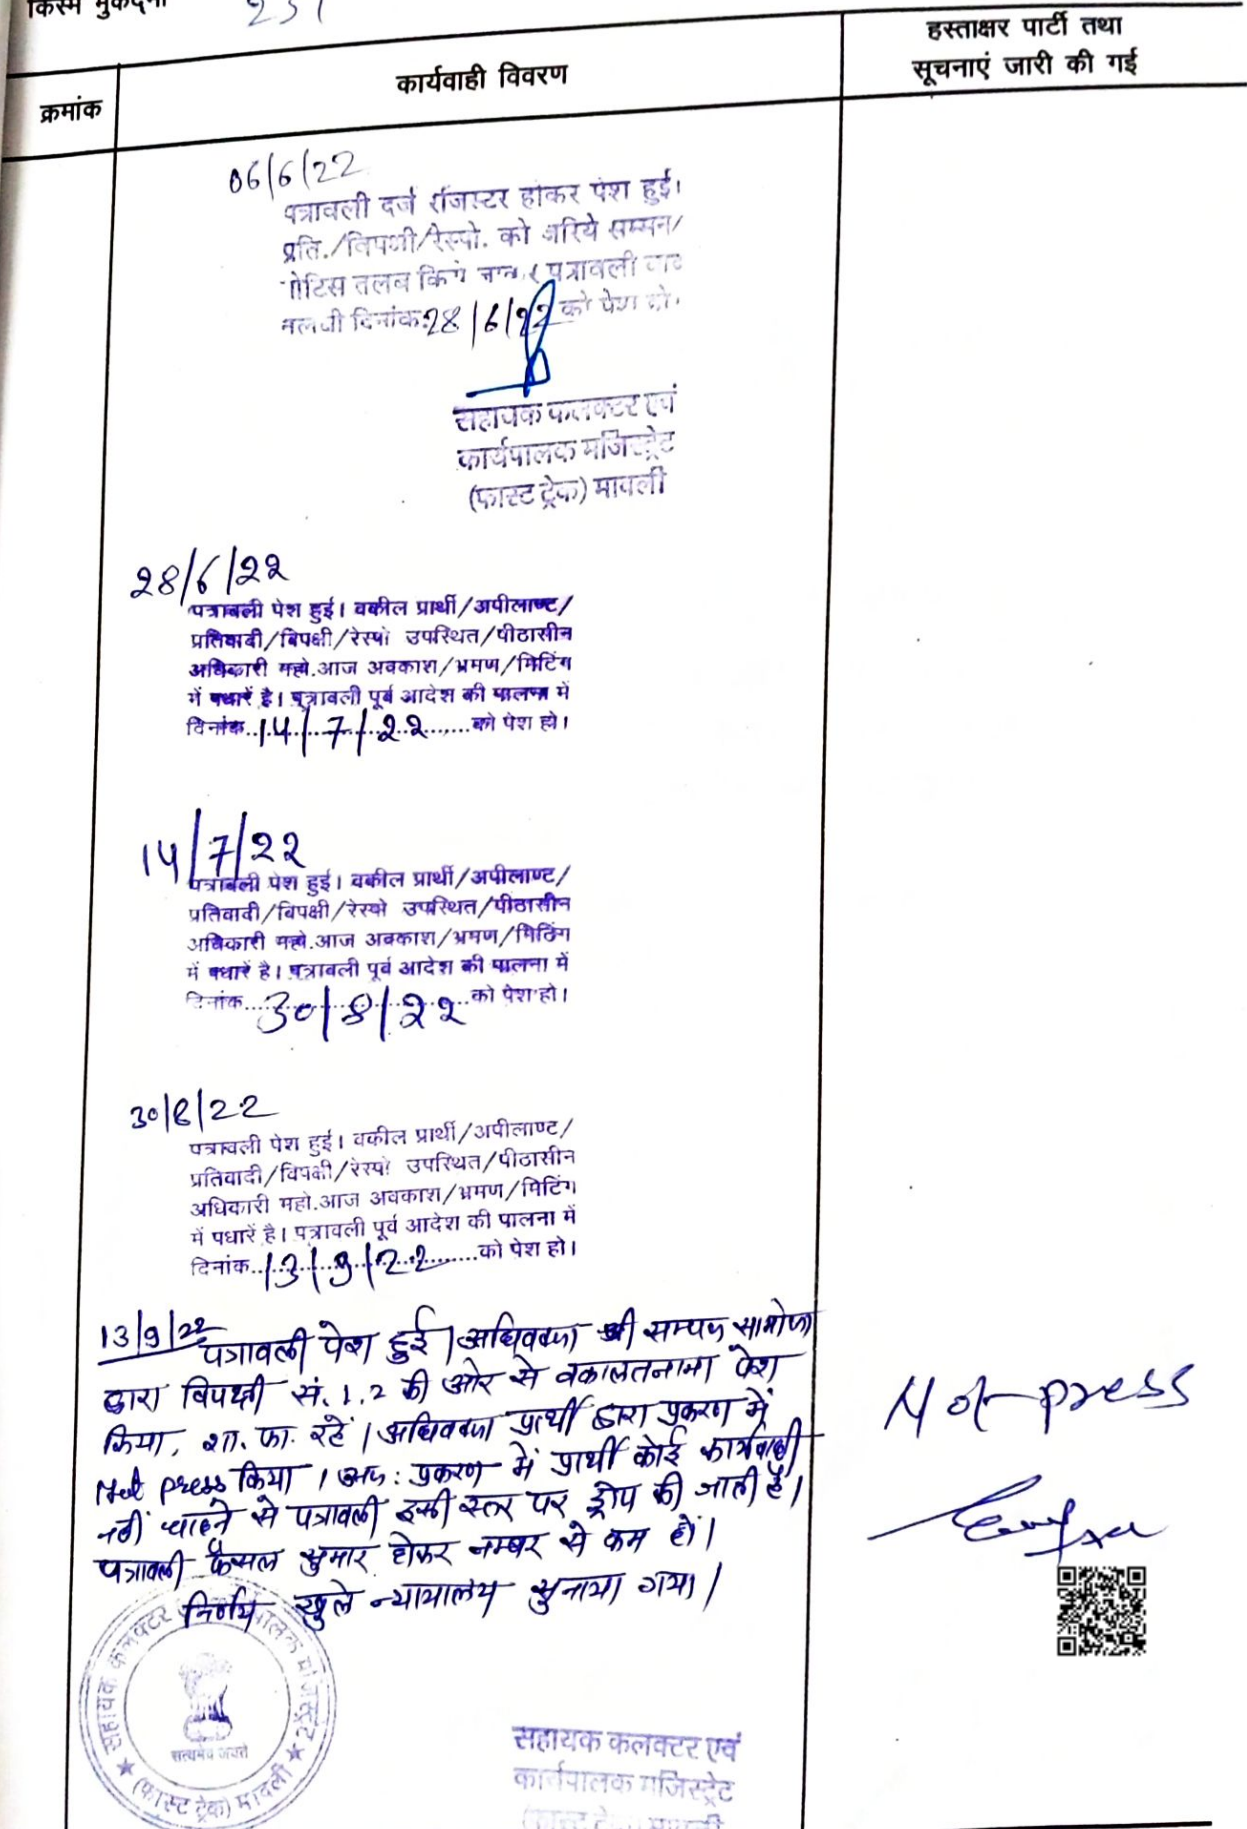 किस्म मुकदमा 251
क्रमांक
कार्यवाही विवरण
हस्ताक्षर पार्टी तथा
सूचनाएं जारी की गई
06/6/22
पत्रावली दर्ज रजिस्टर होकर पेश हुई।
प्रति./विपक्षी/रेस्पो. को जरिये सम्मन/
नोटिस तलब किये जाकर पत्रावली वास्ते
तलबी दिनांक 28/6/22 को पेश हो।
सहायक कलक्टर एवं
कार्यपालक मजिस्ट्रेट
(फास्ट ट्रेक) मावली
28/6/22
पत्रावली पेश हुई। वकील प्रार्थी/अपीलाण्ट/
प्रतिवादी/विपक्षी/रेस्पो उपस्थित/पीठासीन
अधिकारी महो.आज अवकाश/भ्रमण/मिटिंग
में पधारें है। पत्रावली पूर्व आदेश की पालना में
दिनांक..14/7/22......को पेश हो।
14/7/22
पत्रावली पेश हुई। वकील प्रार्थी/अपीलाण्ट/
प्रतिवादी/विपक्षी/रेस्पो उपस्थित/पीठासीन
अधिकारी महो.आज अवकाश/भ्रमण/मिटिंग
में पधारें है। पत्रावली पूर्व आदेश की पालना में
दिनांक...30/8/22..को पेश हो।
30/8/22
पत्रावली पेश हुई। वकील प्रार्थी/अपीलाण्ट/
प्रतिवादी/विपक्षी/रेस्पो उपस्थित/पीठासीन
अधिकारी महो.आज अवकाश/भ्रमण/मिटिंग
में पधारें है। पत्रावली पूर्व आदेश की पालना में
दिनांक..13/9/22......को पेश हो।
13/9/22 पत्रावली पेश हुई। अधिवक्ता श्री सम्पत
द्वारा विपक्षी सं. 1, 2 की ओर से वकालतनामा पेश
किया, शा. फा. रहें। अधिवक्ता प्रार्थी द्वारा प्रकरण में
Not press किया। अतः प्रकरण में प्रार्थी कोई कार्यवाही
नहीं चाहने से पत्रावली इसी स्तर पर ड्रोप की जाती है।
पत्रावली फैसल शुमार होकर नम्बर से कम हो।
निर्णय खुले न्यायालय सुनाया गया।
Not press
सहायक कलक्टर एवं कार्यपालक मजिस्ट्रेट
सत्यमेव जयते
(फास्ट ट्रेक) मावली
सहायक कलक्टर एवं
कार्यपालक मजिस्ट्रेट
(फास्ट ट्रेक) मावली